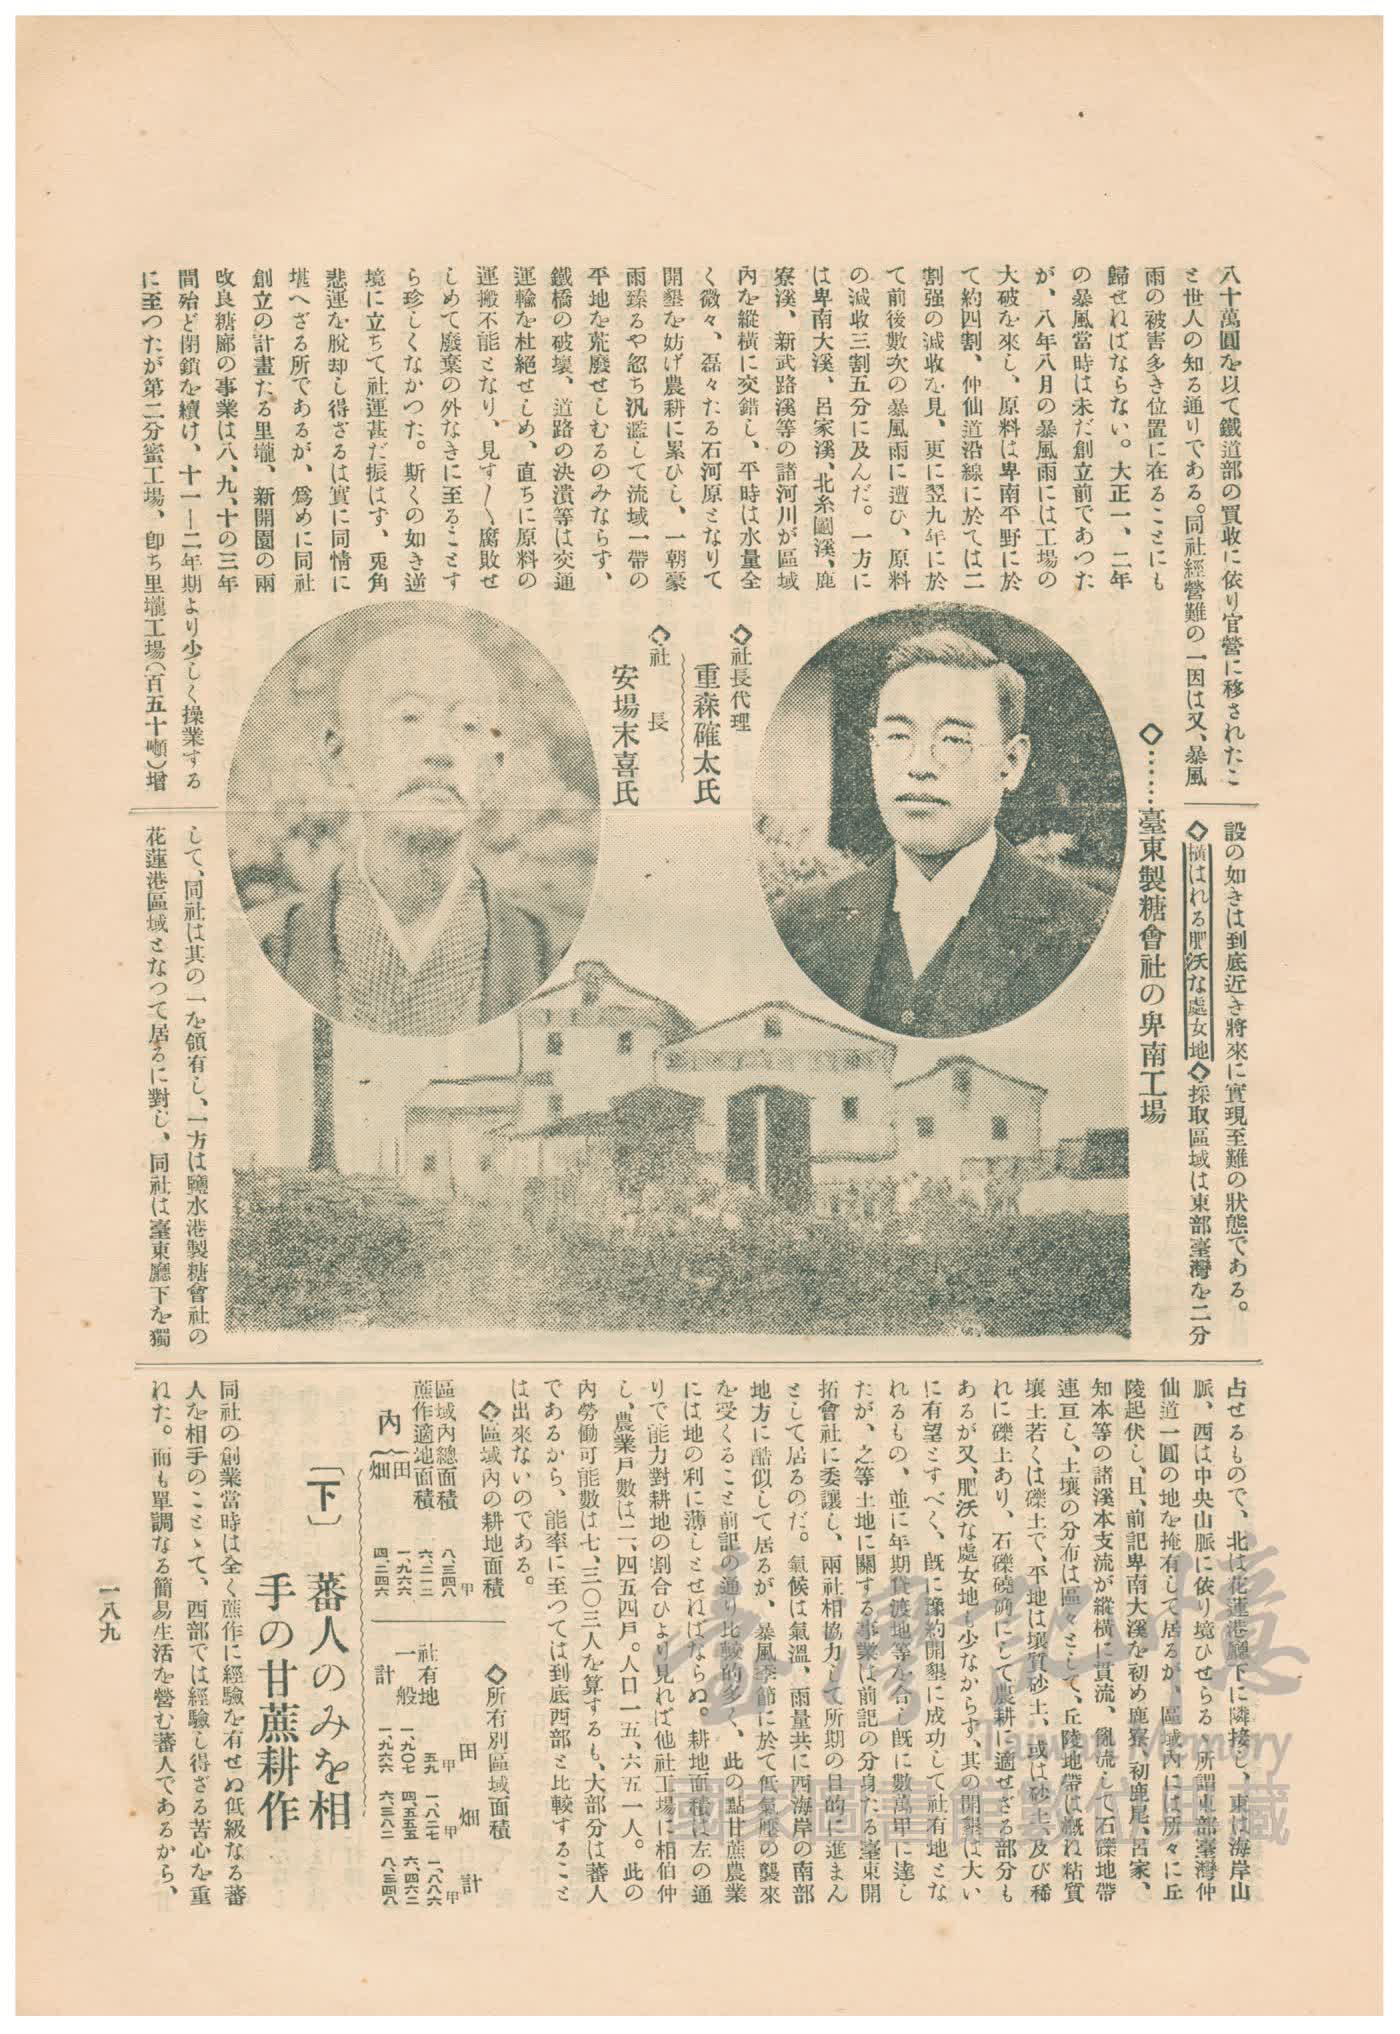 八十萬圓を以て鐵道部の買收に依り官營に移されたこ
と世人の知る通りである。同社經營難の一因は又、暴風
雨の被害多き位置に在ることにも
歸せねばならない。大正一、二年
の暴風當時は未だ創立前であつた
が、八年八月の暴風雨には工場の
大破を來し、原料は卑南平野に於
て約四割、仲仙道沿線に於ては二
割强の減收を見、更に翌九年に於
て前後數次の暴風雨に遭ひ、原料
の減收三割五分に及んだ。一方に
は卑南大溪、呂家溪、北糸鬮溪、鹿
寮溪、新武路溪等の諸河川が區域
內を縱橫に交錯し、平時は水量全
く微々、磊々たる石河原となりて
開墾を妨げ農耕に累ひし、一朝豪
雨臻るや忽ち汎濫して流域一帶の
平地を荒廢せしむるのみならず、
鐵橋の破壞、道路の決潰等は交通
運輸を杜絕せしめ、直ちに原料の
運搬不能となり、見す〱腐敗せ
しめて廢棄の外なきに至ることす
ら珍しくなかつた。斯くの如き逆
境に立ちて社運甚だ振はず、兎角
悲運を脫却し得ざるは實に同情に
堪へざる所であるが、爲めに同社
創立の計畫たる里壠、新開園の兩
改良糖廍の事業は八、九、十の三年
間殆ど閉鎖を續け、十一—二年期より少しく操業する
に至つたが第二分蜜工場、卽ち里壠工場(百五十噸)增
◇……臺東製糖會社の卑南工場
◇社長代理
重森確太氏
◇社長
安場末喜氏
設の如きは到底近き將來に實現至難の狀態である。
◇橫はれる肥沃な處女地◇採取區域は東部臺灣を二分
して、同社は其の一を領有し、一方は鹽水港製糖會社の
花蓮港區域となつて居るに對し、同社は臺東廳下を獨
占せるもので、北は花蓮港廳下に隣接し、東は海岸山
脈、西は中央山脈に依り境ひせらる、所謂東部臺灣仲
仙道一圓の地を掩有して居るが、區域內には所々に丘
陵起伏し、且、前記卑南大溪を初め鹿寮、初鹿尾、呂家、
知本等の諸溪本支流が縱橫に貫流、亂流して石礫地帶
連亘し、土壤の分布は區々として、丘陵地帶は槪ね粘質
壤土若くは礫土で、平地は壤質砂土、或は砂土及び稀
れに礫土あり、石礫磽确にして農耕に適せざる部分も
あるが又、肥沃な處女地も少なからず、其の開墾は大い
に有望とすべく、旣に豫約開墾に成功して社有地とな
れるもの、並に年期貸渡地等を合し旣に數萬甲に達し
たが、之等土地に關する事業は前記の分身たる臺東開
拓會社に委讓し、兩社相協力して所期の目的に進まん
として居るのだ。氣候は氣溫、雨量共に西海岸の南部
地方に酷似して居るが、暴風季節に於て低氣壓の襲來
を受くること前記の通り比較的多く、此の點甘蔗農業
には地の利に薄しとせねばならぬ。耕地面積は左の通
りで能力對耕地の割合ひより見れば他社工場に相伯仲
し、農業戶數は二、四五四戶。人口一五、六五一人。此の
內勞働可能數は七、三〇三人を算するも、大部分は蕃人
であるから、能率に至つては到底西部と比較すること
は出來ないのである。
◇區域內の耕地面積
甲
區域內總面積 八、三四八
蔗作適地面積 六、二一二
內 田 一、九六六
畑 四、二四六
◇所有別區域面積
田 畑 計
甲 甲 甲
社有地 五九 一、八二七 一、八八六
一般 一、九〇七 四、五五五 六、四六二
計 一、九六六 六、三八二 八、三四八
〔下〕 蕃人のみを相
手の甘蔗耕作
同社の創業當時は全く蔗作に經驗を有せぬ低級なる蕃
人を相手のことゝて、西部では經驗し得ざる苦心を重
ねた。而も單調なる簡易生活を營む蕃人であるから、
一八九
臺灣記憶
Taiwan Memory
國家圖書館數位典藏